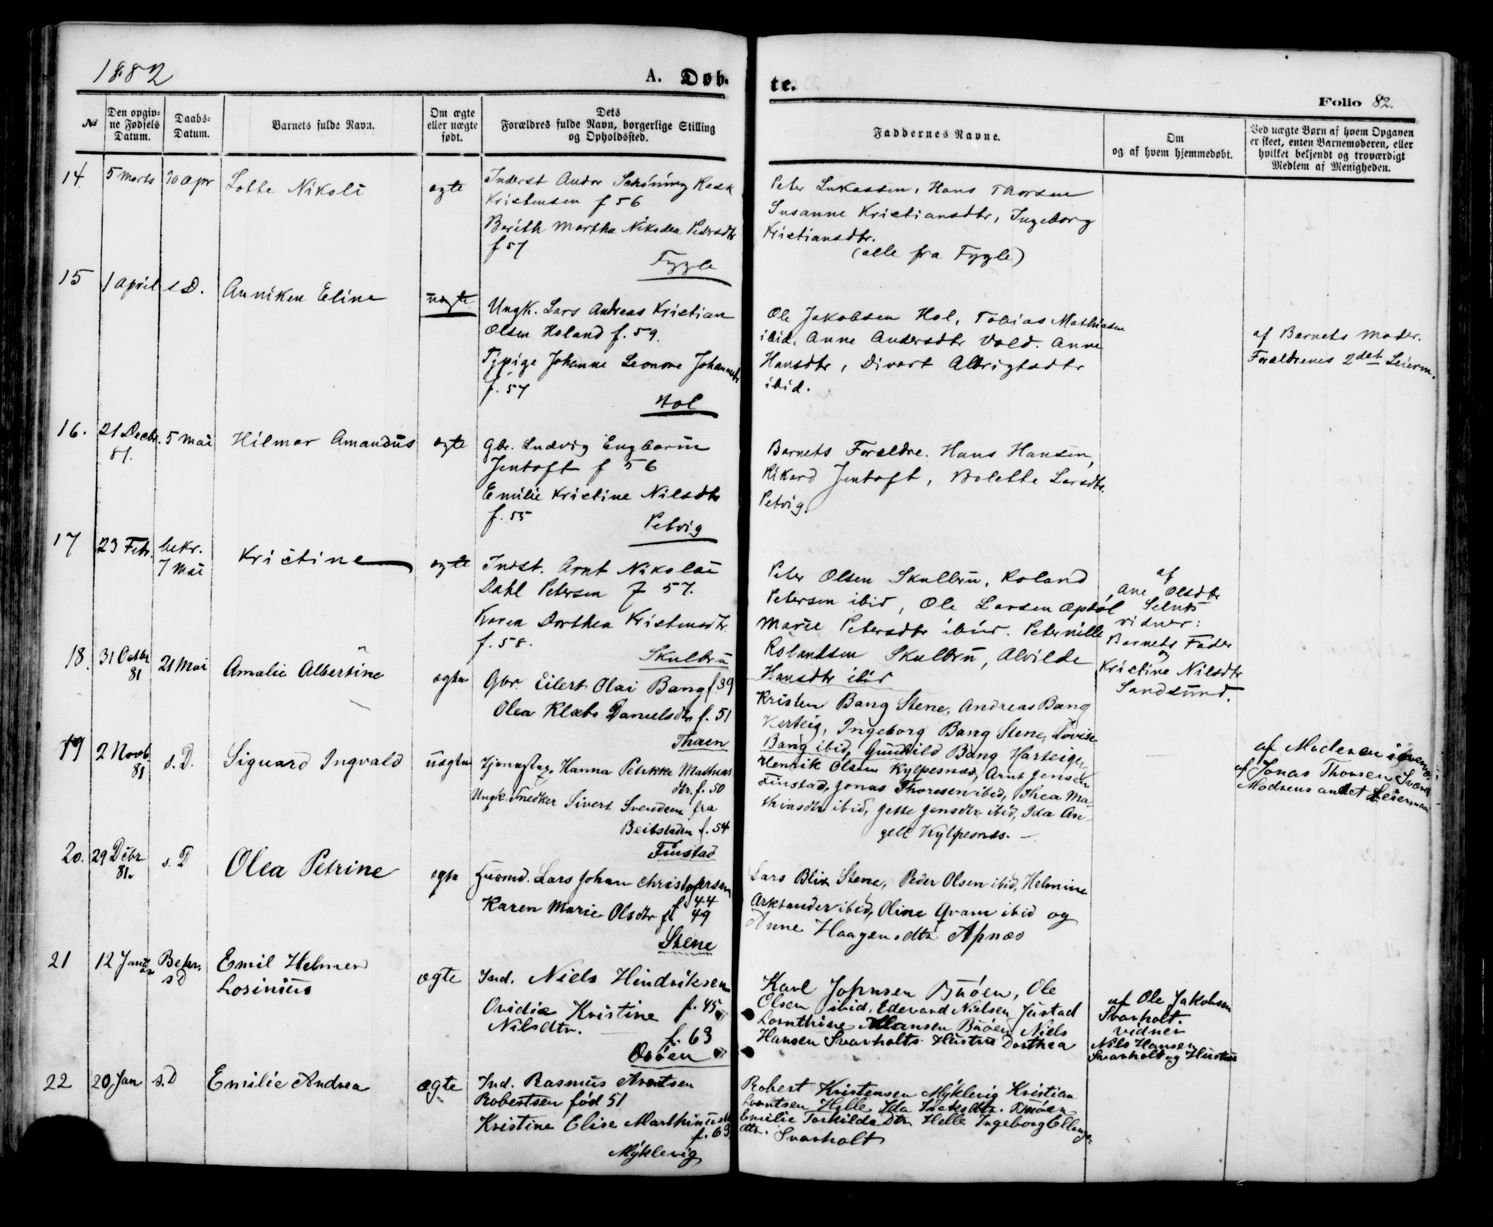 1882
A. Døb-
te.
Folio 82.
№
Den opgiv-
ne Fødsels
Datum.
Daabs-
Datum.
Barnets fulde Navn.
Om ægte
eller uægte
født.
Dets
Forældres fulde Navn, borgerlige Stilling
og Opholdssted.
Faddernes Navne.
Om
og af hvem hjemmedøbt.
Ved uægte Børn af hvem Opgaven
er skeet, enten Barnemoderen, eller
hvilket bekjendt og troværdigt
Medlem af Menigheden.
14. 5 Marts 30 apr Lotte Nikoli ægte
Inderst Andor Schöning Rask
Kristensen f 56
Berith Martha Nikolea Pedersdtr
f 57
Fygle
Peter Lukassen, Hans Thorsen
Susanne Kristiansdtr, Ingeborg
Kristiansdtr.
(alle fra Fygle)
15 1 april s.D. Anniken Eline uægte
Ungk. Lars Andreas Kristian
Olsen Holand f. 59.
Tjpige Johanne Leonore Johannesdtr
f. 57
Hol
Ole Jakobsen Hol, Tobias Mathiasen
ibid. Anne Andersdtr Vold. Anne
Hansdtr, Divert Albrigtsdtr
ibid.
af Barnets Moder.
Forældrenes 2det Leierm.
16. 21 Decbr. 81. 5 Mai Hilmar Amandus ægte
Gbr. Ludvig Engbarm
Jentoft f 56
Emilie Kristine Nilsdtr
f. 55
Petvig
Barnets Forældre. Hans Hansen,
Rikard Jentoft, Bolette Larsdtr.
Petvig.
17 23 Febr. bekr. 7 Mai Kristine ægte
Indst. Arnt Nikolai
Dahl Petersen f 57.
Karen Dorthea Kristensdtr.
f. 58.
Skulbru
Peter Olsen Skulbru, Roland
Petersen ibid, Ole Larsen Opdøl
Marie Petersdtr ibid. Peternille
Rolandsen Skulbru, Alvilde
Hansdtr ibid
af
Ane Olsdtr
vidner:
Barnets Fader
og
Kristine Nilsdtr
Sandsund.
18. 31 Octbr 81 21 Mai Amalie Albertine ægte
Gbr. Eilert Olai Bang f 39
Olea Klæbo Danielsdtr f. 51
Thæn
Kristen Bang Stene, Andreas Bang
Herteig, Ingeborg Bang Stene, Lovise
Bang ibid, Gunhild Bang Harteigen
19 2 Novb 81 s.D. Siguard Ingvald uægte
Hanna Petrikke Mathias
dtr. f. 50
Ungk. Snedker Sivert Svendsen fra
Beitstaden f. 54
Finstad
Henrik Olsen Kylpesnæs, Arnt Jensen
Finstad, Jonas Thoresen ibid, Thea Ma-
thisdtr ibid, Jette Jensdtr ibid, Ida An-
gell Kylpesnæs.
af Moderen
af Jonas Thoresen
Moderens andet Leiermaal
20. 29 Debr 81. s. D Olea Petrine ægte
Husmd. Lars Johan Christophersen
f. 44
Karen Marie Olsdtr f. 49
Stene
Lars Blix Stene, Peder Olsen ibid, Helmine
Arktander ibid, Oline Qvam ibid og
Anne Haagensdtr Apnæs
21 12 Januar Bekr. s D Emil Helmer
Losinius
ægte
Ind. Niels Hindriksen
f. 45
Ovidia Kristine
Nilsdtr. f. 63
Karl Johnsen Buøen, Ole
Olsen ibid, Edevard Nielsen Justad
Lornthine Hansen Buøen, Niels
Hansen Svarholts Hustru Dorthea
af Ole Jakobsen
Svarholt.
vidner
Nils Hansen
Svarholt og Hustru
22 20 Jan s.D Emilie Andrea ægte
Ind. Rasmus Arntsen
Robertsen född 51
Kristine Elise Marthinusdtr
f. 63
Myklevig
Robert Kristensen Myklevig Kristian
Lorntsen Helle Ida Isaksdtr. Buøen
Emilie Torkildsdtr Helle Ingeborg Ellings-
dtr. Svarholt